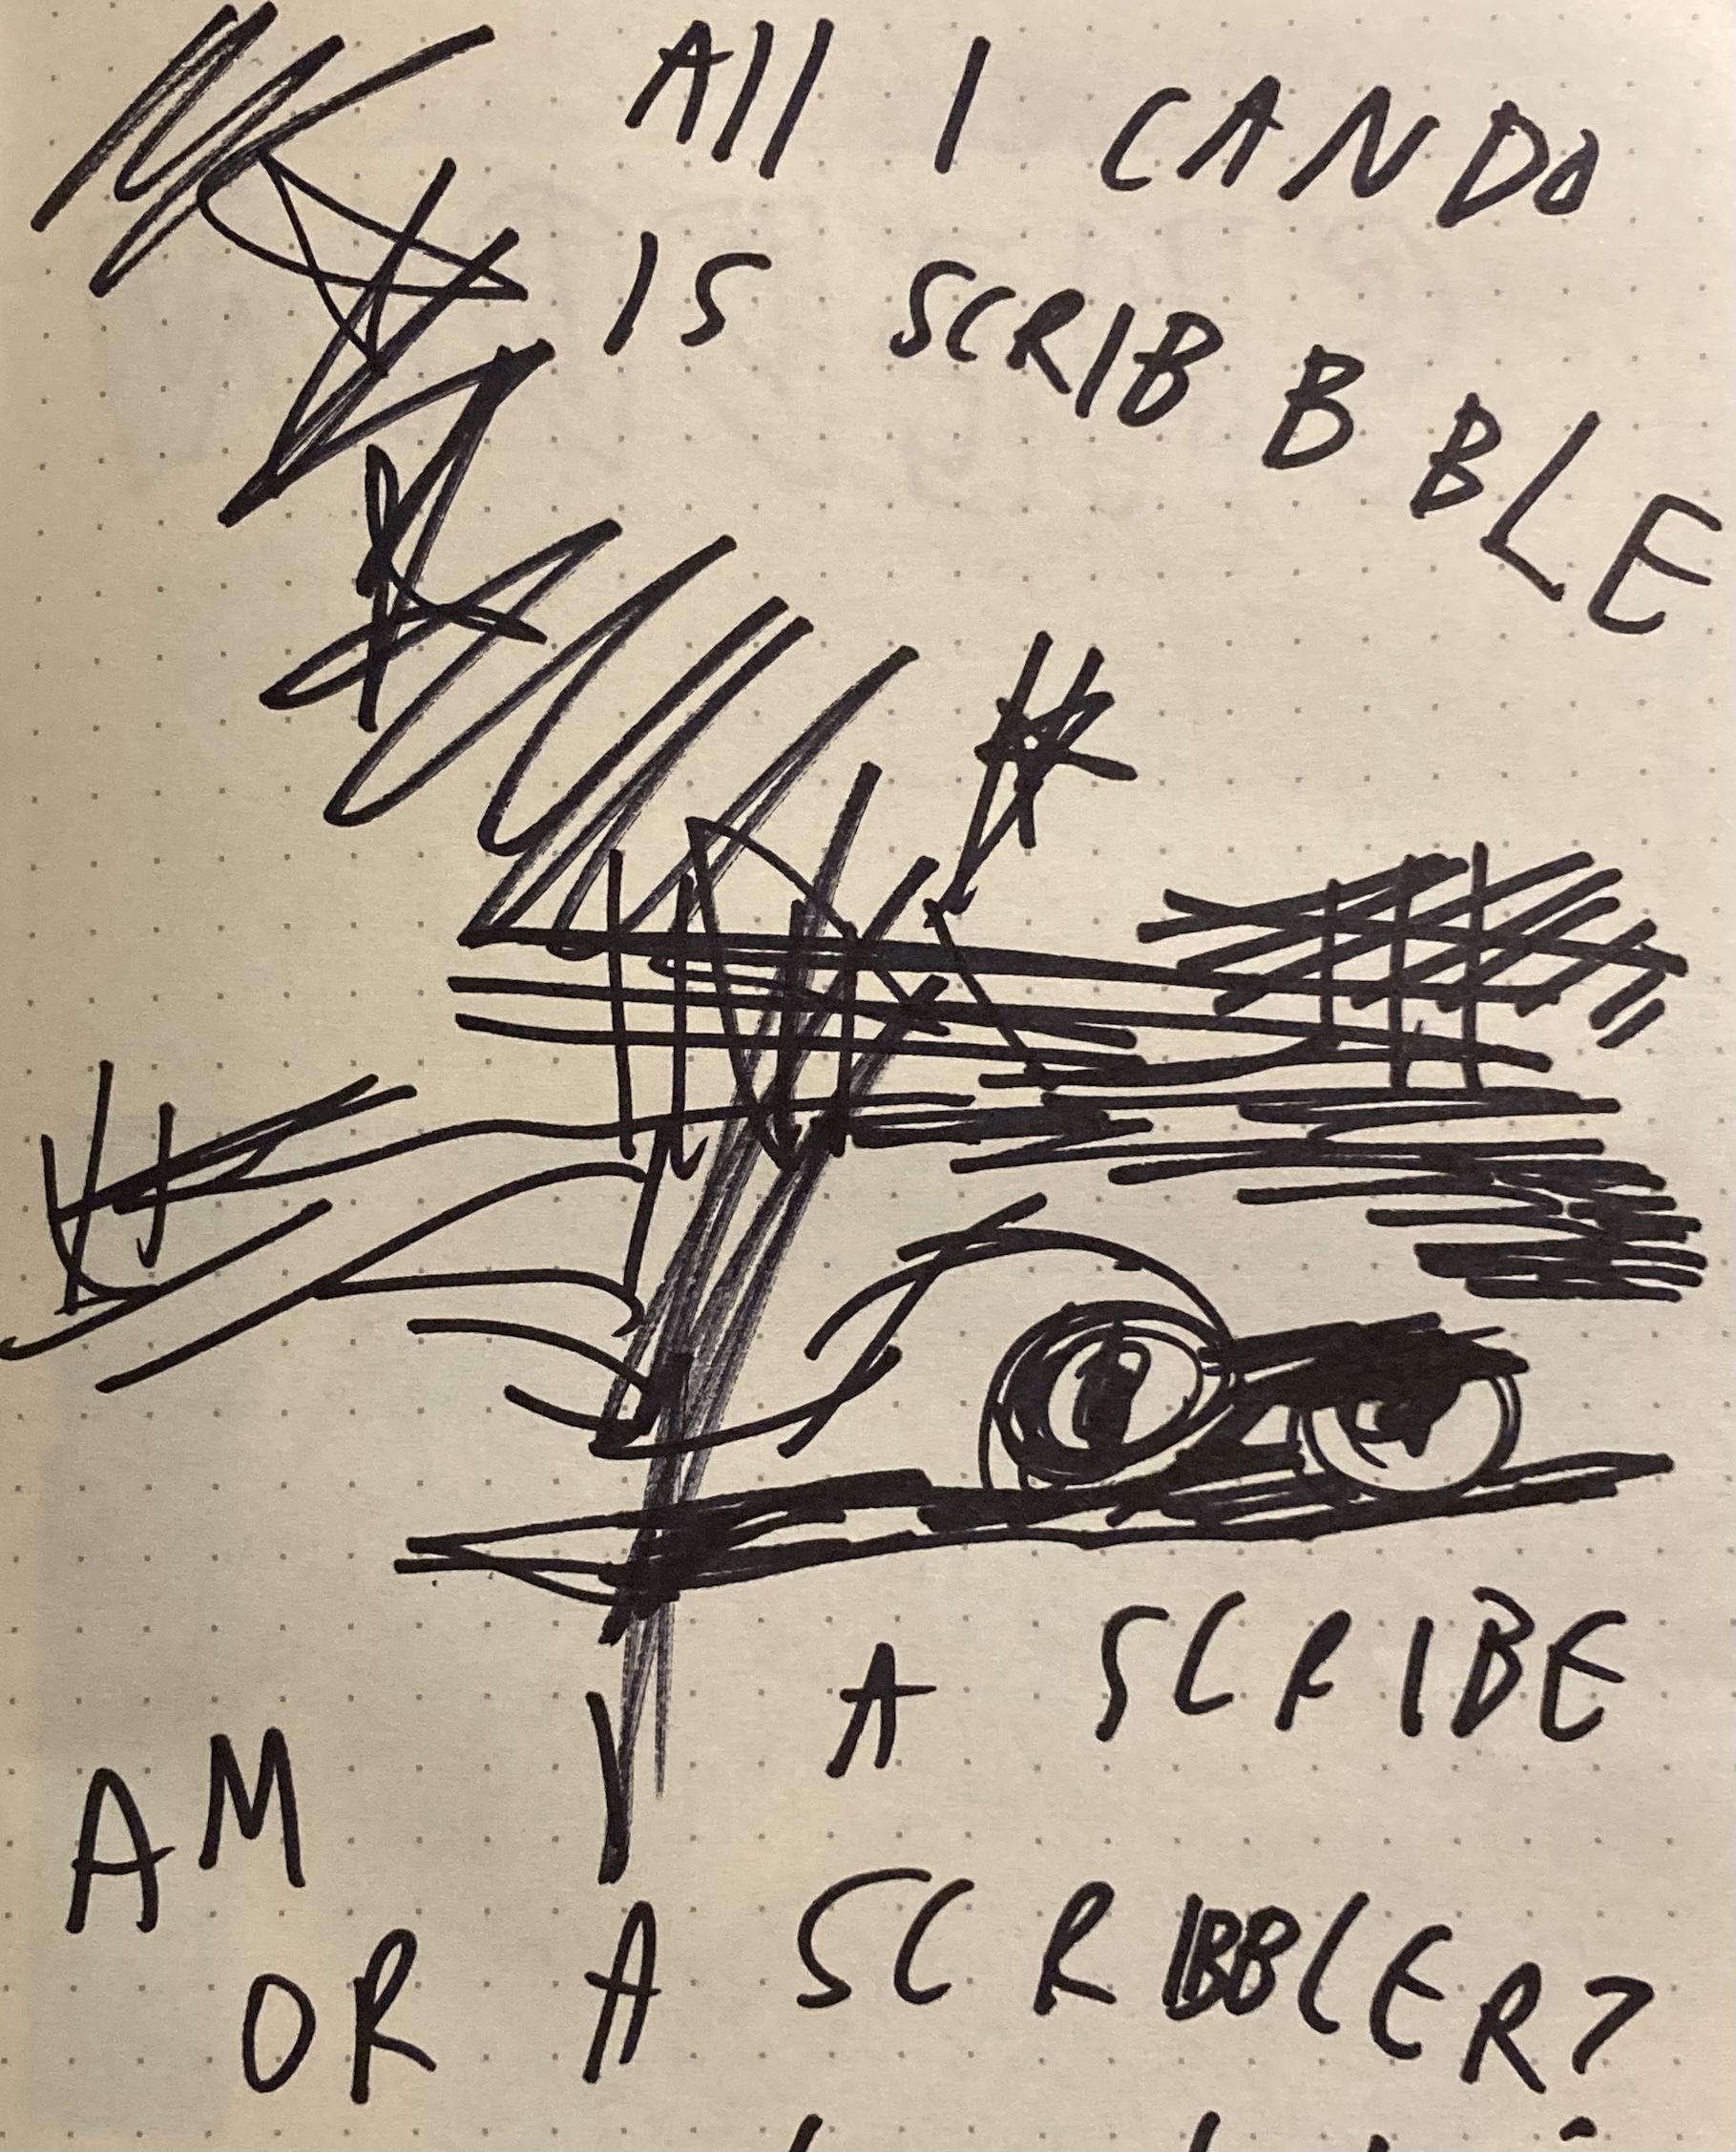 All I CAN DO
IS SCRIBBBLE
AM I A SCRIBE
OR A SCRIBBLER?